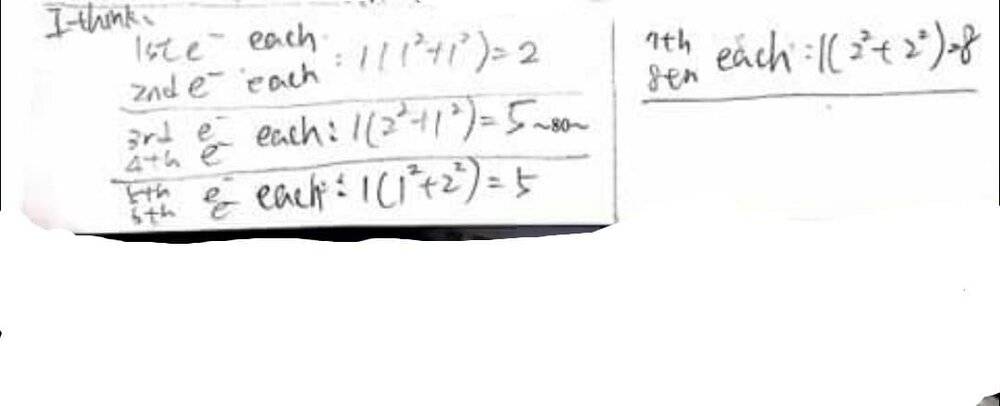 I think、
1st e⁻ each
2nd e⁻ each : 1(1²+1²)=2
3rd e⁻
4th e⁻ each: 1(2²+1²)=5 ~80~
5th e⁻
6th e⁻ each: 1(1²+2²)=5
7th
8th each: 1(2²+2²)=8